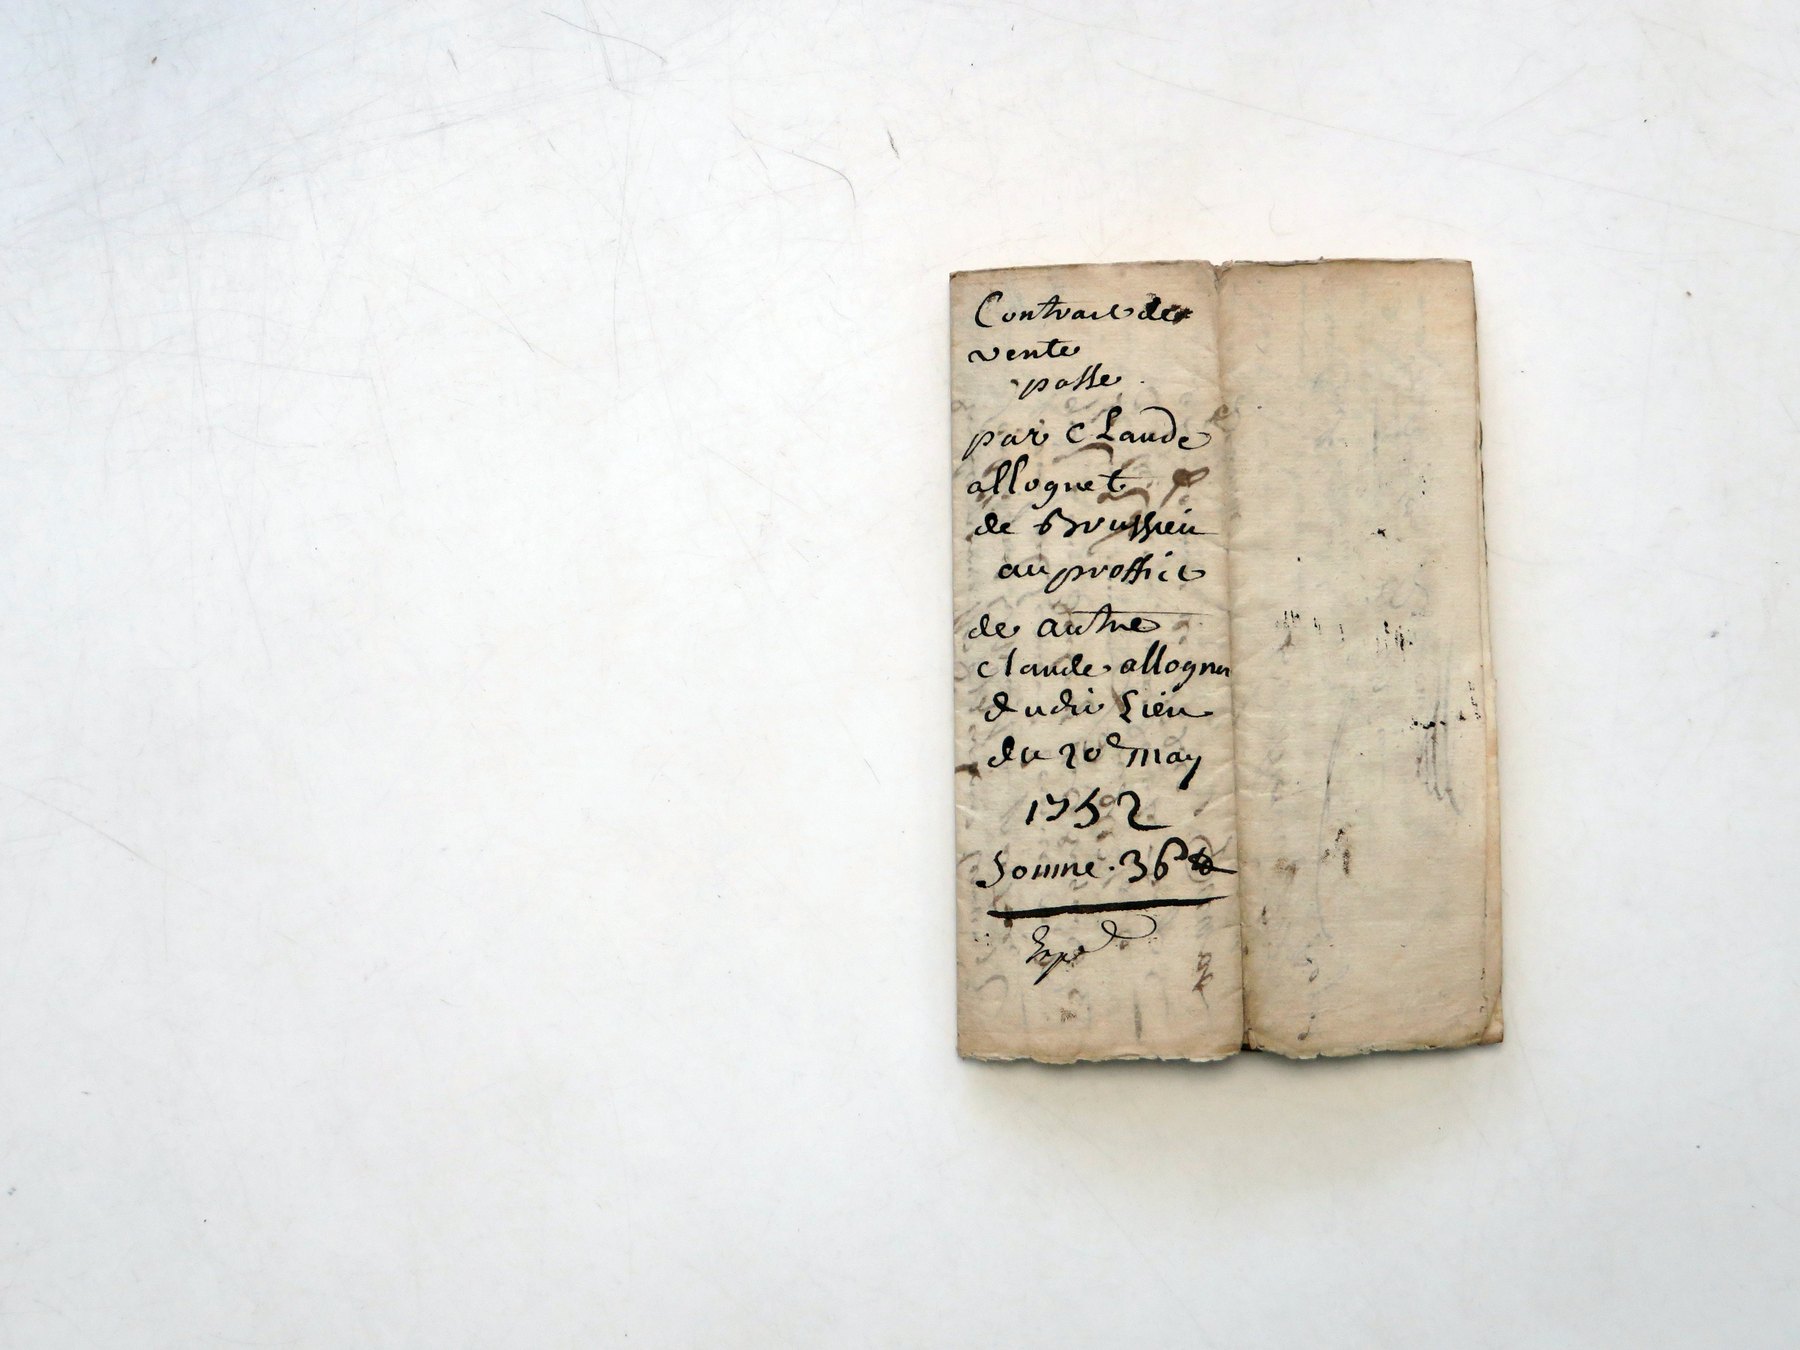 Contract de
vente
passe
par Claude
allognet
de Brussieu
au proffict
de autre
claude allognet
dudit Lieu
du 20e may
1752
Somme . 36 ₶
Expé